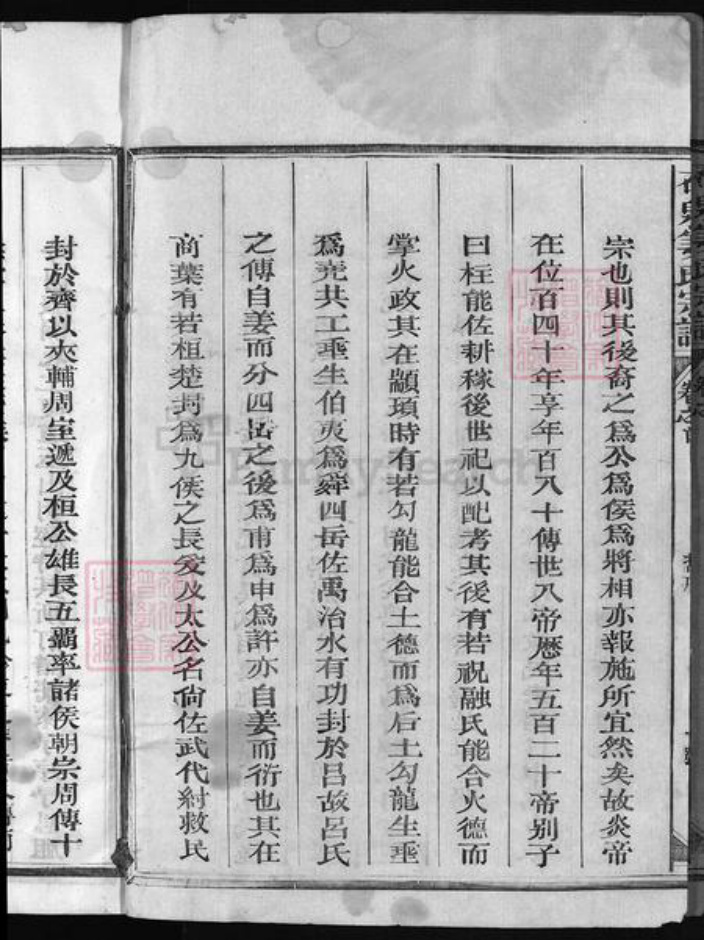 姜氏宗譜
卷之首
宗也則其後裔之爲公爲侯爲將相亦報施所宜然矣故炎帝
在位百四十年享年百八十傳世八帝歷年五百二十帝别子
曰柱能佐耕稼後世祀以配考其後有若祝融氏能合火德而
掌火政其在顓頊時有若勾龍能合土德而爲后土勾龍生垂
爲堯共工垂生伯夷爲舜四岳佐禹治水有功封於吕故呂氏
之傳自姜而分四岳之後爲甫爲申爲許亦自姜而衍也其在
商葉有若桓楚封爲九侯之長爰及太公名尙佐武代紂救民
封於齊以夾輔周室遞及桓公雄長五覇率諸侯朝宗周傳十
FamilySearch